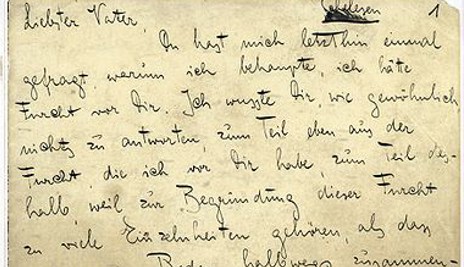 Gelesen 1
Liebster Vater,
Du hast mich letzthin einmal
gefragt, warum ich behaupte, ich hätte
Furcht vor Dir. Ich wusste Dir, wie gewöhnlich,
nichts zu antworten, zum Teil eben aus der
Furcht, die ich vor Dir habe, zum Teil des-
halb, weil zur Begründung dieser Furcht
zu viele Einzelnheiten gehören, als dass
Rede halbwegs zusammen-